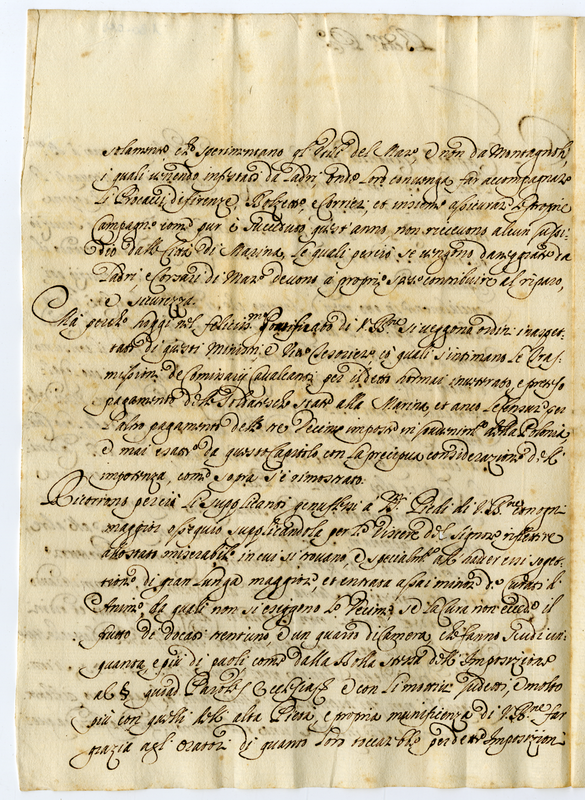 solamente che sperimentano gl'utili del Mare, e non da Montagnoli,
i quali venendo infestati da Ladri, onde loro convenga far accompagnare
li Procacci di firenze, Bolzette, e Corrieri, et insieme assicurare le proprie
Campagne, come pur è succeduto quest'anno, non ricevono alcun sussi-
dio dalle Città di Marina, le quali perciò se vengono danneggiate da
Ladri, e Corsari di Mare devono a proprie spese contribuire al riparo,
e sicurezza.
Ma perche hoggi nel felicissimo Pontificato di V. B.ne si veggono ordini inaspet-
tati di questi Ministri e Vice Tesoriere co' quali s'intimano le tras-
missioni de Comissarij Cavalcanti per il detto hormai inusitato, e preteso
pagamento delle Soldatesche state alla Marina, et anco le Censure per
l'altro pagamento delle tre Decime imposte in sovvenim.to della Polonia
e mai esatte da questo Capitolo, con la precipua consideratione dell'
impotenza, come sopra si è dimostrato.
Ricorrono perciò li supplicanti genuflessi a SS.mi Piedi di V. B.ne con ogni
maggior ossequio supplicandola per le Viscere del Signore riflettere
allo stato miserabile in cui si trovano, e specialm.te al non haver essi sogget-
tione di gran lunga maggiore, et entrata assai minore de Curati di
Anime, da quali non si esiggono le Decime, se la Cura non eccede il
frutto de ducati ventiuno d'un quarto di Camera, che fanno scudi cin-
quanta, e più di paoli, come dalla Bolla stessa dell'Imposizione
al § quod Parochiales Ecclesias. E con li motivi sudetti, e molto
più con quelli della alta Pietà, e propria munificenza di V. B.ne far
grazia agl' Oratori di quanto loro toccarebbe per dette Imposizioni